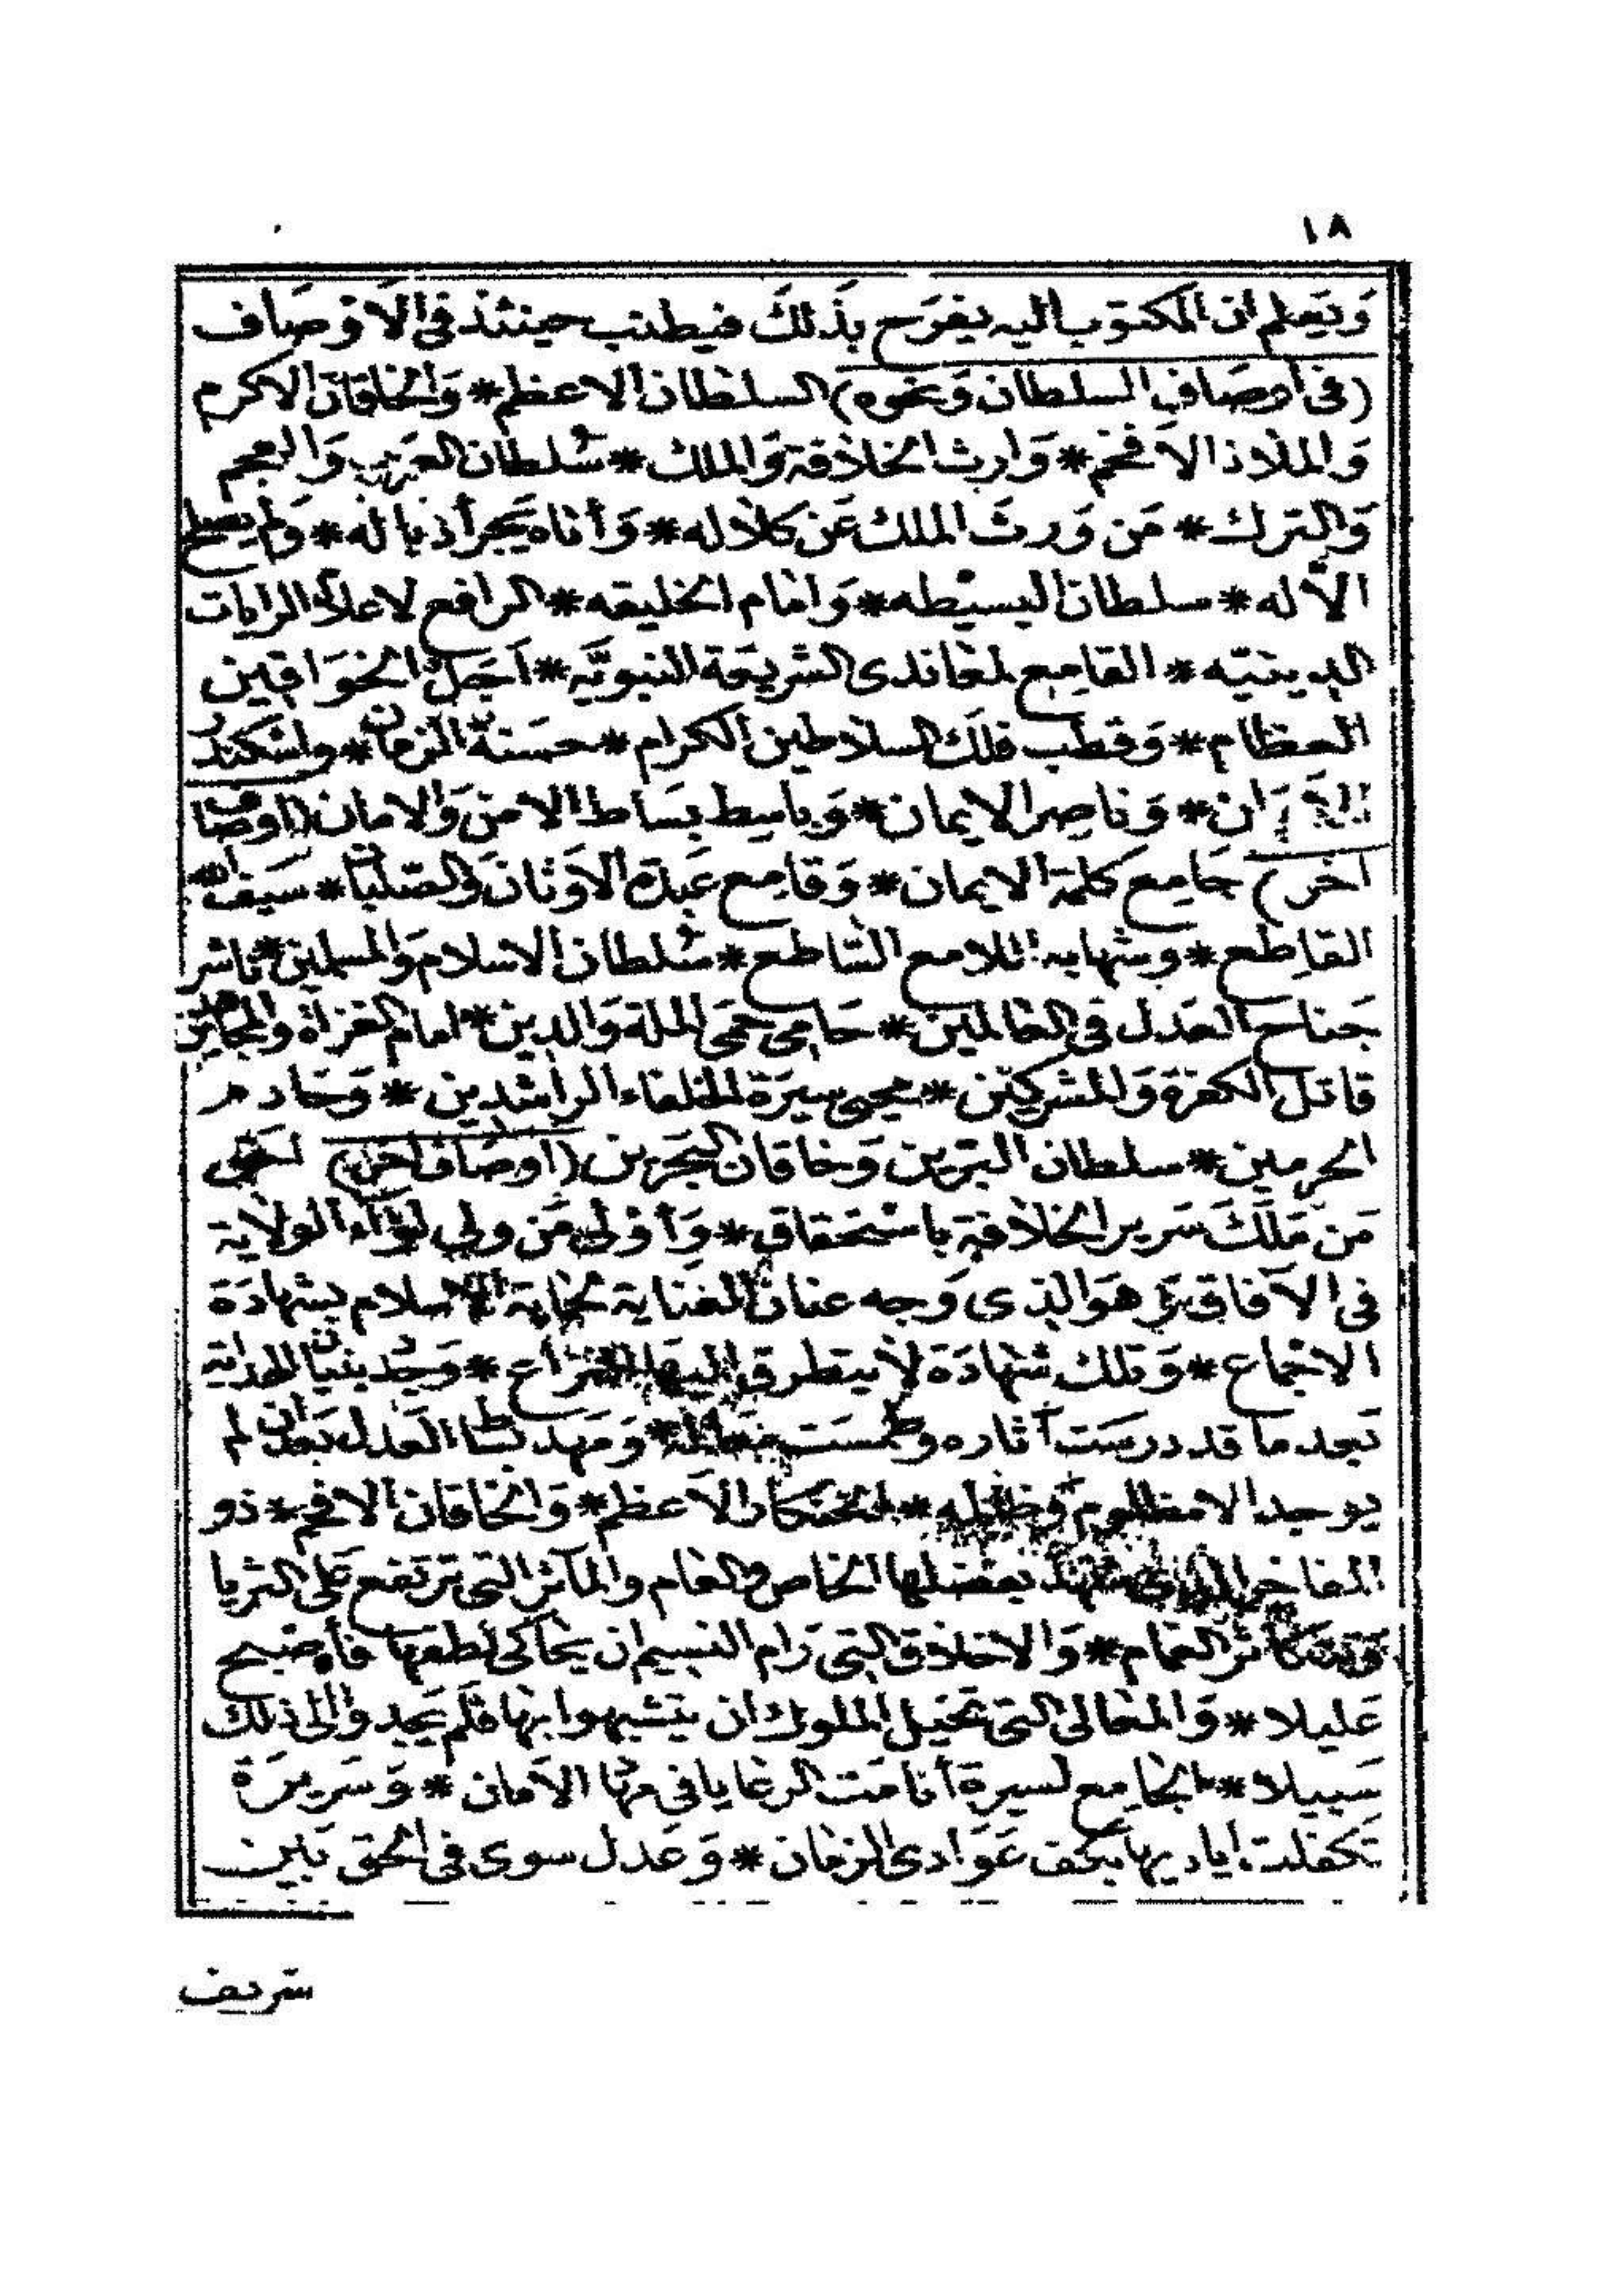 ١٨
وَيَعلم ان المكتوب اليه يفرَح بذلكَ فيطنب حينئذ فى الاَوصَاف
(فى أوصَاف السلطان وَنحوه) السلطان الاعظم * وَالخاقان الاكرم
وَالملاذ الافخم * وَارث الخلافة وَالملك * سُلطان العَرب وَالعجم
وَالترك * مَن وَرث الملك عَن كلاله * وَأتاه يَجر أذياله * وَلم يصلح
الاّ له * سلطان البسيطه * وَامام الخليقه * الرافع لاعلاء الرايات
الدينيّه * القامع لمعاندى الشريعَة النبويَّه * اَجَلّ الخوَاقين
العظام * وَقطب فلَك السلاطين الكرام * حسَنة الزمان * واسكندر
ان * وَناصر الايمان * وَباسط بسَاط الامن وَالامان (اوصاف
اخر) جَامع كلمة الايمان * وَقامع عَبدة الاَوثان وَالصّلبان * سَيف الله
القاطع * وشهابه اللامع الساطع * سُلطان الاسلام وَالمسلمين * ناشر
جَناح العَدل فى العالمين * حَامى حمَى الملة وَالدين * امام الغزاة والمجاهدين
قاتل الكفرة وَالمشركين * محيى سيرَة الخلفاء الراشدين * وَخادم
الحرمين * سلطان البَرين وَخاقان البَحرين (اوصَاف اخرى) احَق
مَن مَلكَ سَرير الخلافة باستحقاق * وَأوْلى مَن ولي لوَاء الولاية
فى الآفاق وَهوَ الذى وَجه عنان العناية لحماية الاسلام بشهادَة
الاجماع * وَتلك شهَادَة لا يتطرق اليها * وَجُد بنيان الهداية
بَعد ما قد درسَت آثاره وطمسَت * وَمَهد بسَاط العَدل بَعد ان لم
يوجد الا مظلوم وَظالمه * الخنكار الاَعظم * وَالخاقان الافخم * ذو
المفاخر بفضلها الخاص والعام والمآثر التى ترتفع عَلى الثريا
الغمام * وَالاخلاق التى رَام النسيم ان يحاكى لطفها فأصبح
عَليلا * وَالمعالى التى تخيل الملوك ان يتشبهوا بها فلم يَجدوا الى ذلك
سَبيلا * الجامع لسيرة أنامَت الرعايا فى مهَا الاَمان * وَسَريرَة
تكفلت اياديها بكف عَوَادى الزمان * وَعَدل سوى فى الحق بَين
شريف